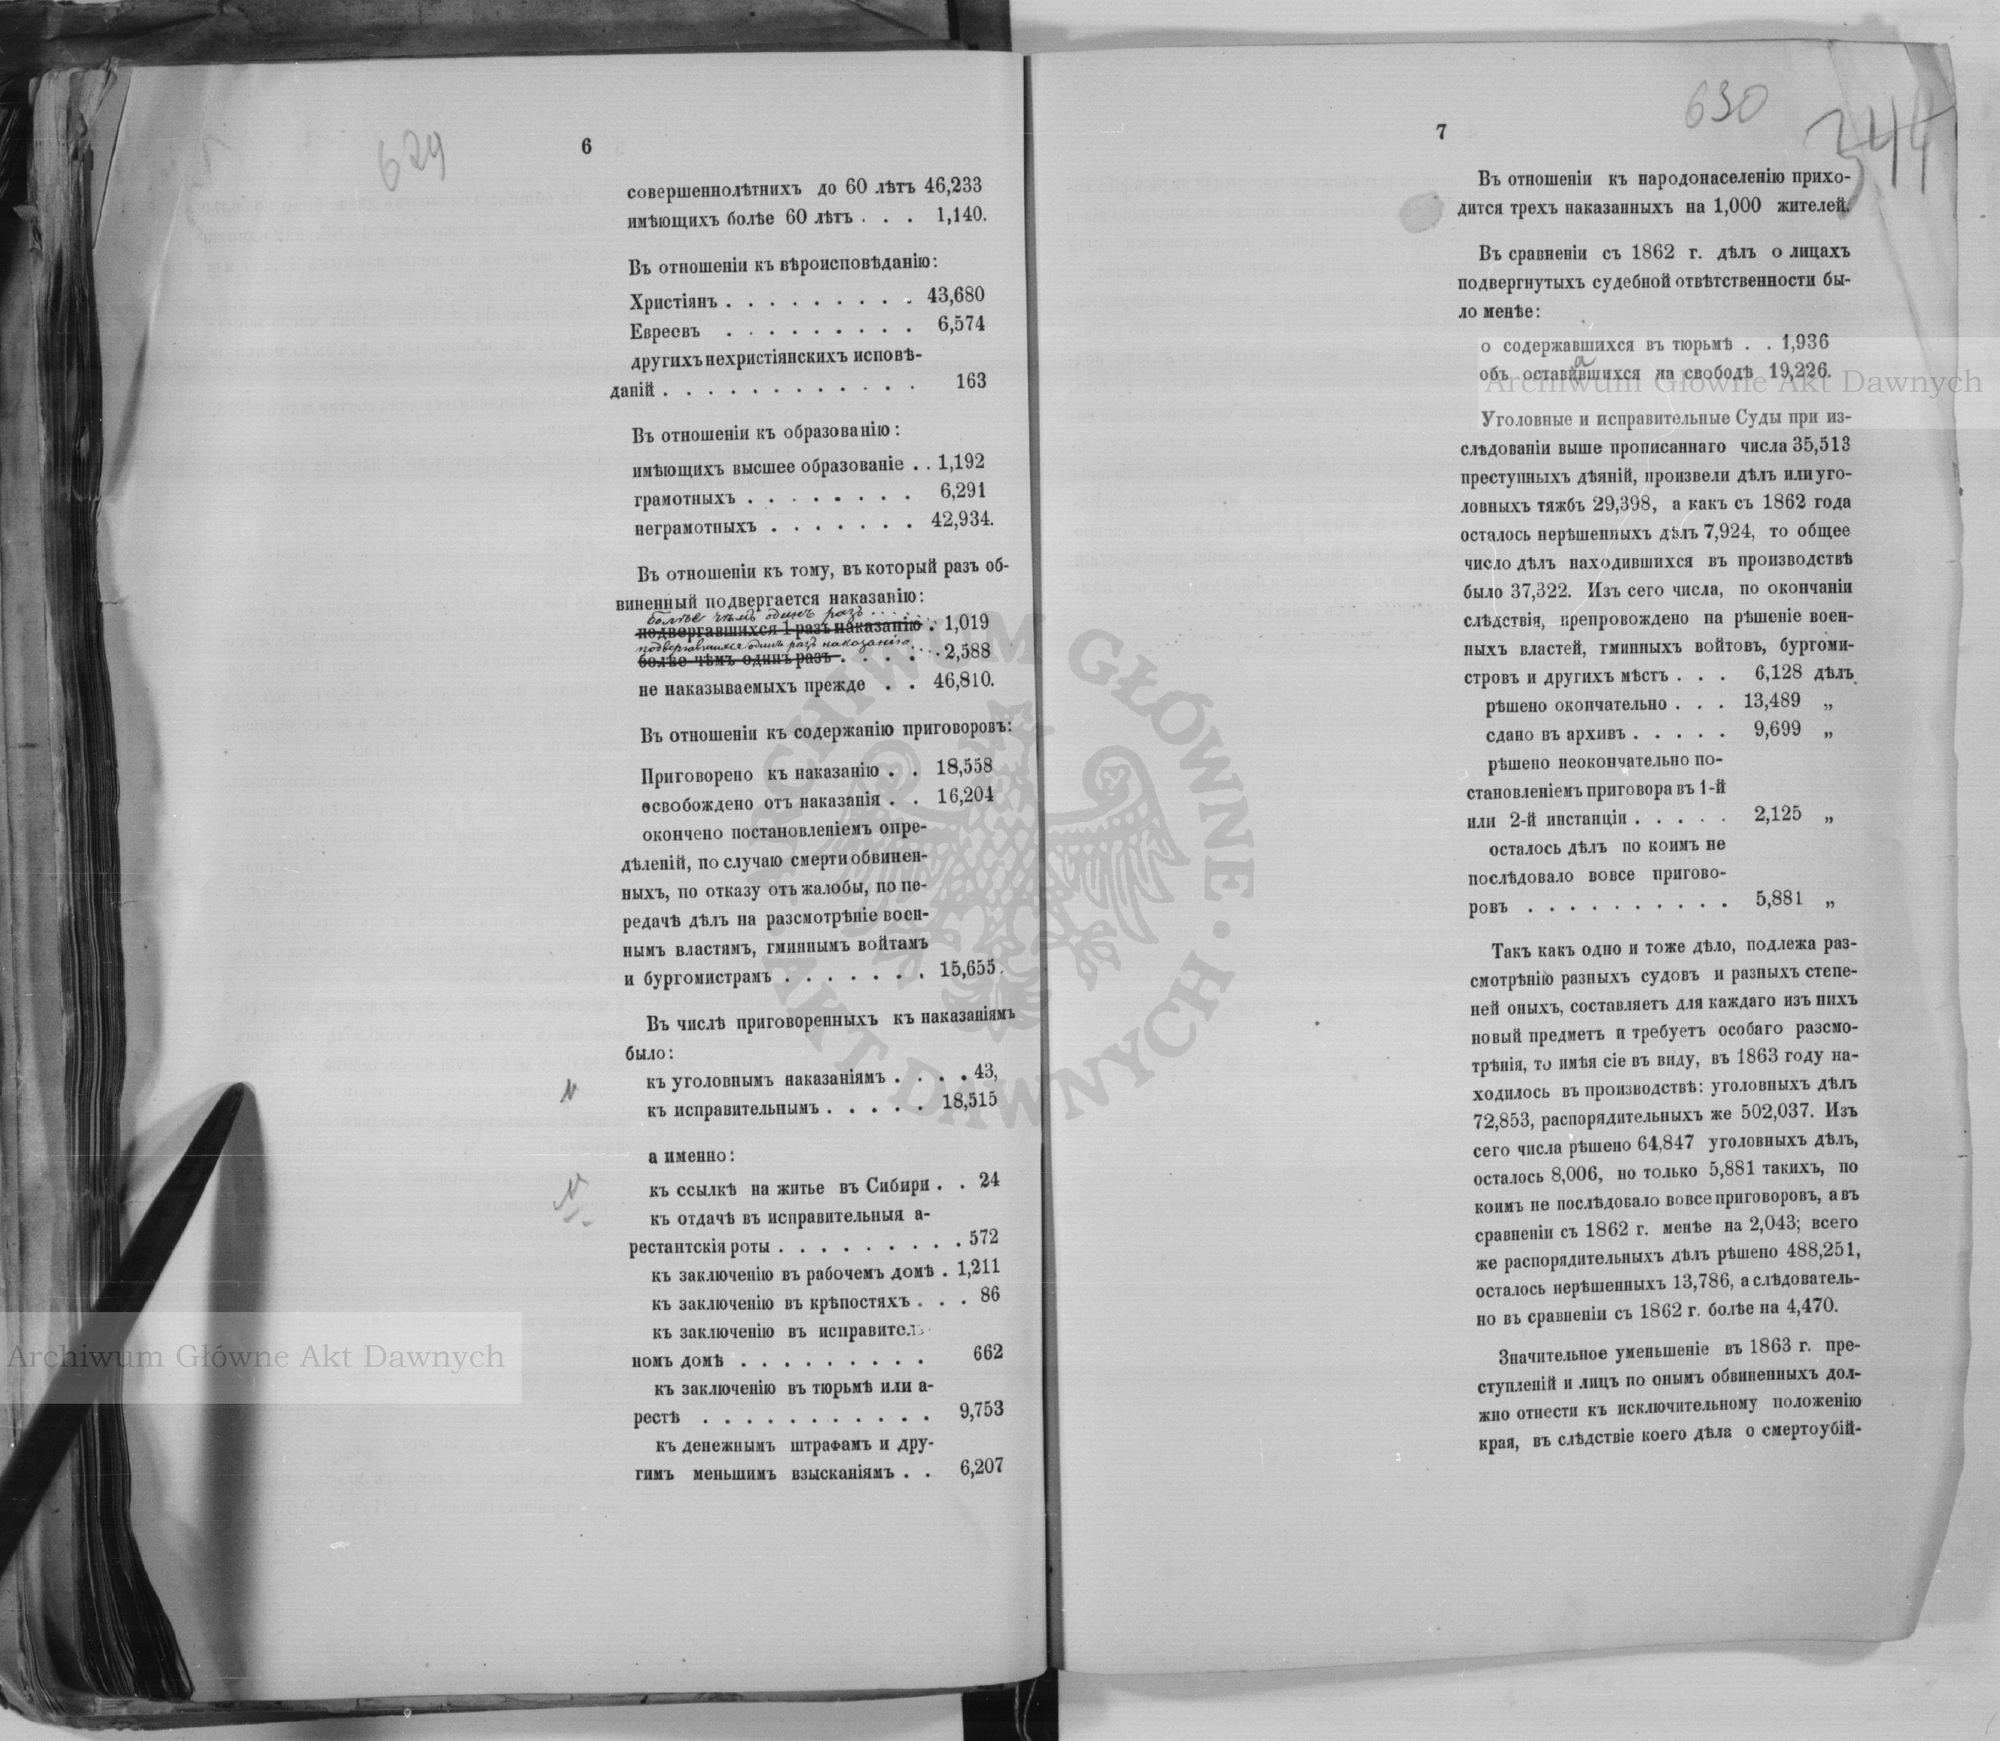 629
6
совершеннолѣтнихъ до 60 лѣтъ 46,233
имѣющихъ болѣе 60 лѣтъ . . . 1,140.
Въ отношеніи къ вѣроисповѣданію:
Христіянъ . . . . . . . . . 43,680
Евреевъ . . . . . . . . . 6,574
другихъ нехристіянскихъ исповѣ-
даній . . . . . . . . . . . . 163
Въ отношеніи къ образованію:
имѣющихъ высшее образованіе . . 1,192
грамотныхъ . . . . . . . . 6,291
неграмотныхъ . . . . . . . 42,934.
Въ отношеніи къ тому, въ который разъ об-
виненный подвергается наказанію:
болѣе чѣмъ одинъ разъ . . . . . .
подвергавшихся 1 разъ наказанію . 1,019
подвергавшихся одинъ разъ наказанію
болѣе чѣмъ одинъ разъ . . . . . . 2,588
не наказываемыхъ прежде . . 46,810.
Въ отношеніи къ содержанію приговоровъ:
Приговорено къ наказанію . . 18,558
освобождено отъ наказанія . . 16,204
окончено постановленіемъ опре-
дѣленій, по случаю смерти обвинен-
ныхъ, по отказу отъ жалобы, по пе-
редачѣ дѣлъ на разсмотрѣніе воен-
нымъ властямъ, гминнымъ войтамъ
и бургомистрамъ . . . . . . . 15,655.
Въ числѣ приговоренныхъ къ наказаніямъ
было:
къ уголовнымъ наказаніямъ . . . . 43,
къ исправительнымъ . . . . . 18,515
а именно:
къ ссылкѣ на житье въ Сибири . . 24
къ отдачѣ въ исправительныя а-
рестантскія роты . . . . . . . . . 572
къ заключенію въ рабочемъ домѣ . 1,211
къ заключенію въ крѣпостяхъ . . . 86
къ заключенію въ исправитель-
номъ домѣ . . . . . . . . . 662
къ заключенію въ тюрьмѣ или а-
рестѣ . . . . . . . . . . . 9,753
къ денежнымъ штрафамъ и дру-
гимъ меньшимъ взысканіямъ . . 6,207
630
344
7
Въ отношеніи къ народонаселенію прихо-
дится трехъ наказанныхъ на 1,000 жителей.
Въ сравненіи съ 1862 г. дѣлъ о лицахъ
подвергнутыхъ судебной отвѣтственности бы-
ло менѣе:
о содержавшихся въ тюрьмѣ . . 1,936
а
объ оставившихся на свободѣ 19,226.
Уголовные и исправительные Суды при из-
слѣдованіи выше прописаннаго числа 35,513
преступныхъ дѣяній, произвели дѣлъ или уго-
ловныхъ тяжбъ 29,398, а какъ съ 1862 года
осталось нерѣшенныхъ дѣлъ 7,924, то общее
число дѣлъ находившихся въ производствѣ
было 37,322. Изъ сего числа, по окончаніи
слѣдствія, препровождено на рѣшеніе воен-
ныхъ властей, гминныхъ войтовъ, бургоми-
стровъ и другихъ мѣстъ . . . 6,128 дѣлъ.
рѣшено окончательно . . . 13,489 „
сдано въ архивъ . . . . . 9,699 „
рѣшено неокончательно по-
становленіемъ приговора въ 1-й
или 2-й инстанціи . . . . . 2,125 „
осталось дѣлъ по коимъ не
послѣдовало вовсе пригово-
ровъ . . . . . . . . . . 5,881 „
Такъ какъ одно и тоже дѣло, подлежа раз-
смотрѣнію разныхъ судовъ и разныхъ степе-
ней оныхъ, составляетъ для каждаго изъ нихъ
новый предметъ и требуетъ особаго разсмо-
трѣнія, то имѣя сіе въ виду, въ 1863 году на-
ходилось въ производствѣ: уголовныхъ дѣлъ
72,853, распорядительныхъ же 502,037. Изъ
сего числа рѣшено 64,847 уголовныхъ дѣлъ,
осталось 8,006, но только 5,881 такихъ, по
коимъ не послѣдовало вовсе приговоровъ, а въ
сравненіи съ 1862 г. менѣе на 2,043; всего
же распорядительныхъ дѣлъ рѣшено 488,251,
осталось нерѣшенныхъ 13,786, а слѣдователь-
но въ сравненіи съ 1862 г. болѣе на 4,470.
Значительное уменьшеніе въ 1863 г. пре-
ступленій и лицъ по онымъ обвиненныхъ дол-
жно отнести къ исключительному положенію
края, въ слѣдствіе коего дѣла о смертоубій-
Archiwum Główne Akt Dawnych
Archiwum Główne Akt Dawnych
ARCHIWUM GŁÓWNE · AKT DAWNYCH ·